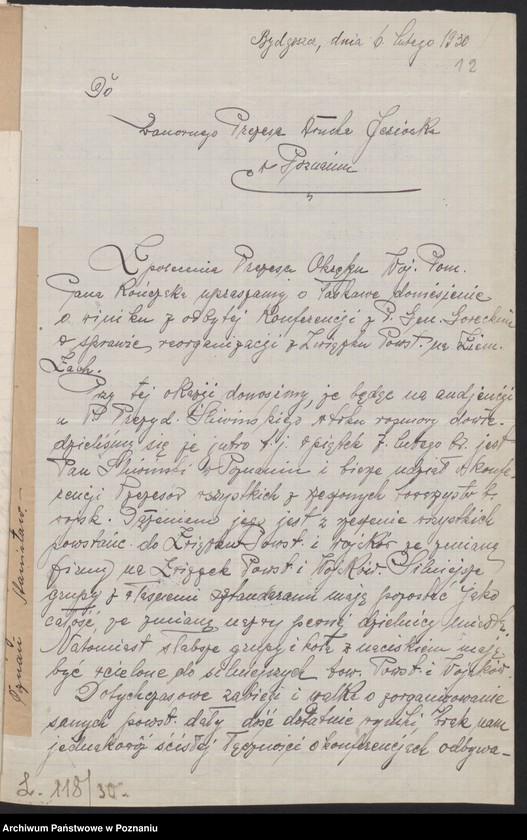 Bydgoszcz, dnia 6. lutego 1930
12
Do
Szanownego Prezesa Druha Jesionka
w Poznaniu
Z polecenia Prezesa Okręgu Woj. Pom.
Pana Kończaka upraszamy o łaskawe doniesienie
o winiku z odbytej Konferencji z P. Gen. Góreckim
w sprawie reorganizacji z Związku Powst. na Ziem.
Zach.
Przy tej okazji donosimy, że będąc na audjencji
u P. Prezyd. Śliwińskiego w toku rozmowy dowie-
dzieliśmy się że jutro t. j. w piątek 7. lutego br. jest
Pan Śliwiński w Poznaniu i bierze udział w konfe-
rencji Prezesów wszystkich z towarzystw b.
wojsk. jego jest z wszystkich
powstańc. do Związków Powst. i Wojków ze zmianą
firmy na Związek Powst. i Wojków. Silniejsze
grupy z własnemi sztandarami mają pozostać jako
całość ze zmianą nazwy pewnej dzielnicy
Natomiast słabsze grupy i koła z naciskiem mają
być wcielone do silniejszych tow. Powst. i Wojków.
Dotychczasowe zabiegi i walka o zorganizowanie
samych powst. dały dość dodatnie wyniki, brak nam
jednakowoż ścisłej łączności o konferencjach odbywa-
Poznań Stanisław. -
L. 118/30.-
Archiwum Państwowe w Poznaniu